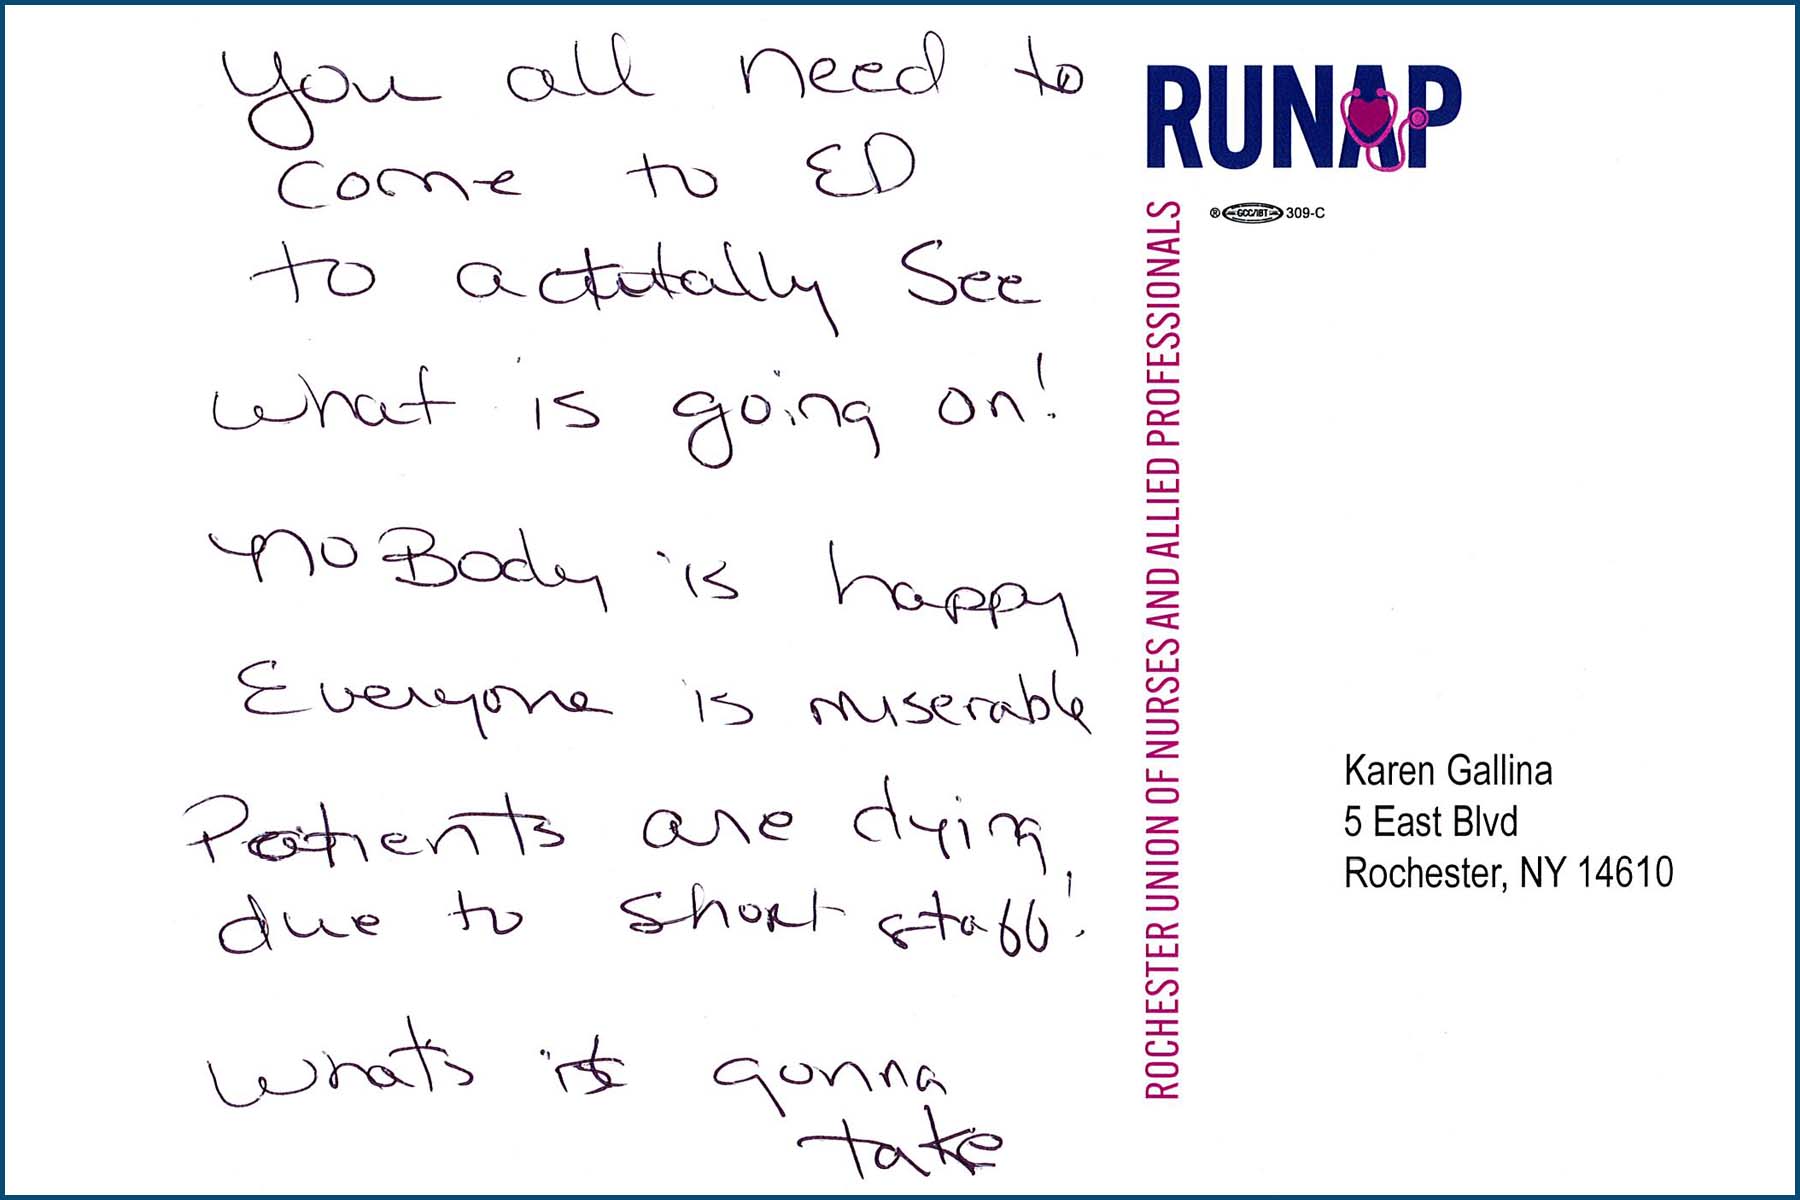 You all need to
come to ED
to actutally See
what is going on!
no Body is happy
Everyone is miserable
Patients are dying
due to short staff!
What's it gonna
take
RUNAP
® GCC/IBT 309-C
ROCHESTER UNION OF NURSES AND ALLIED PROFESSIONALS
Karen Gallina
5 East Blvd
Rochester, NY 14610